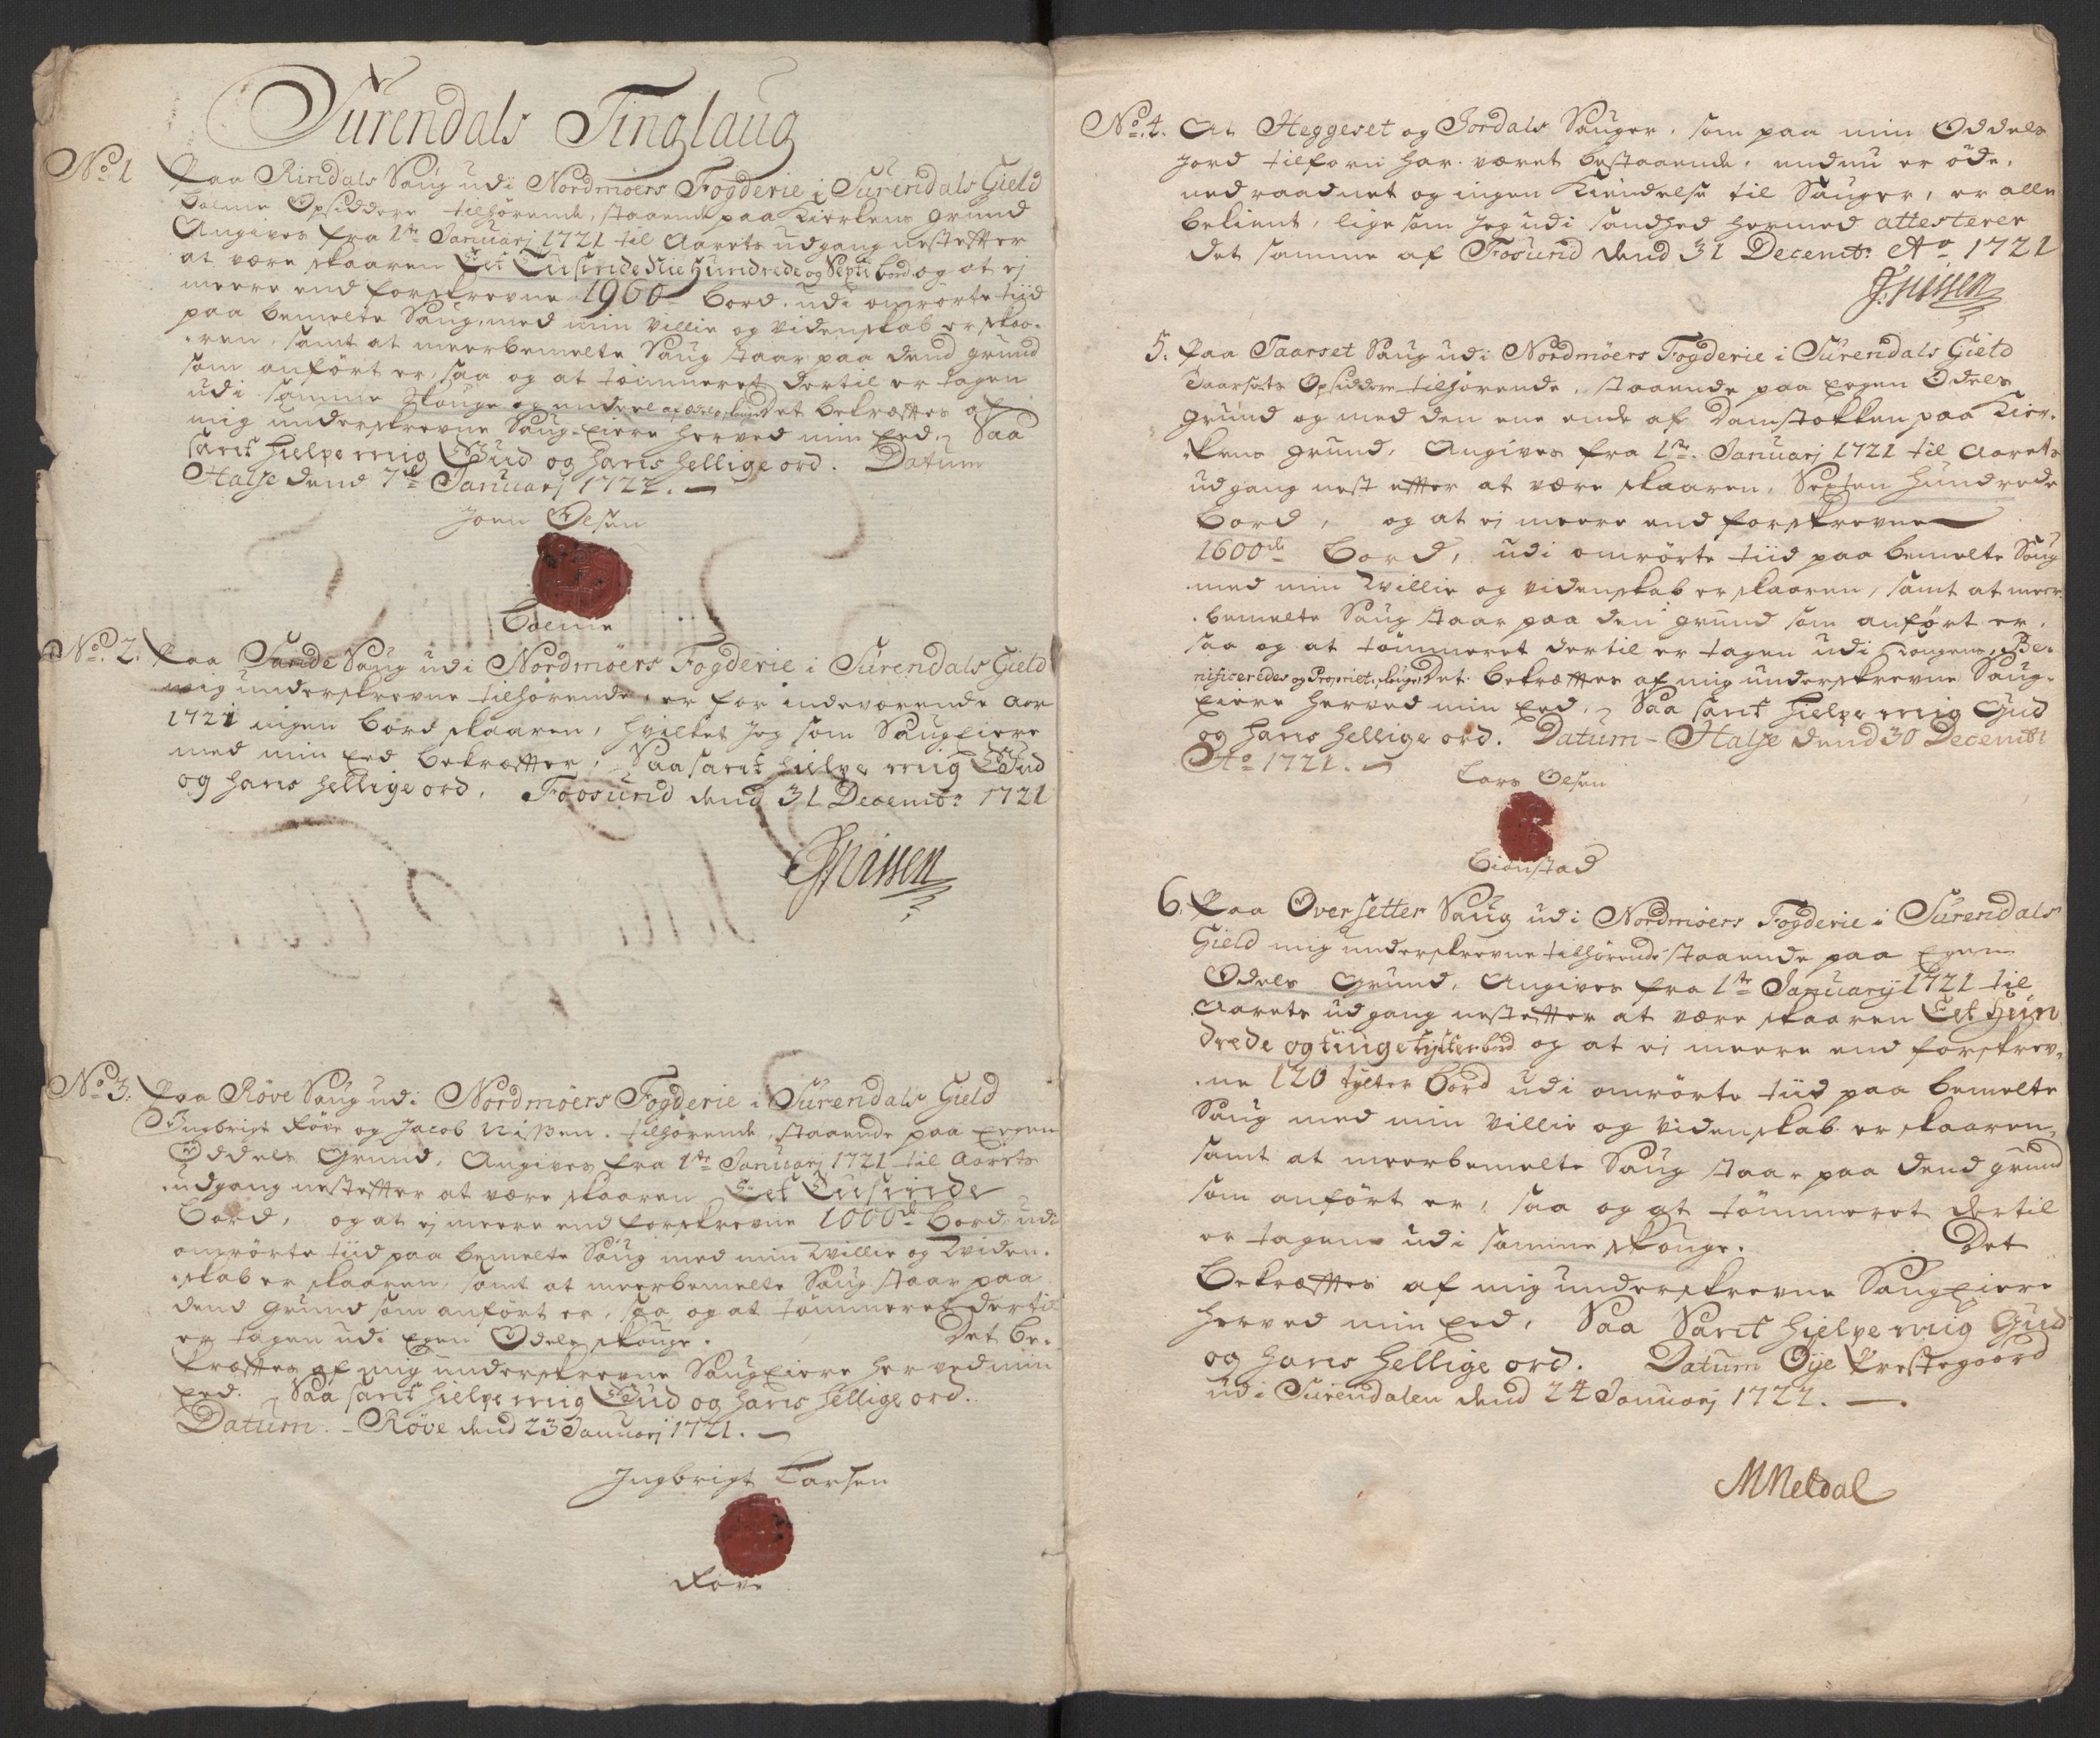 Surendals Tinglaug
No. 1 Paa Rindals Saug udi Nordmøers Fogderie i Surendals Gield
Bolme Opsiddere tilhørende, staaende paa Kierkens grund
Angives fra 1te Januarj 1721 til Aarets udgang nest efter
at være skaaren Eet Tusinde Nie Hundrede og Sexti bord og at ej
meere end forskrevne 1960 bord udi omrørte tiid
paa bemelte Saug, med min Villie og Videnskab er skaa-
ren, samt at meerbemelte Saug staar paa dend grund
som anført er, saa og at tømmeret dertil er tagen
udi samme Skouge og endeel af Odels skouge Det bekræfftes af
mig underskrevne Saug-Eiere herved min Eed, Saa
sant hielpe mig Gud og hans hellige ord. Datum
Halse dend 7de Januarj 1722.
Joen Olsen
Bolme
No. 2. Paa Sande Saug udi Nordmøers Fogderie i Surendals Gield
mig underskrevne tilhørende, er for indeværende Aar
1721 ingen bord skaaren, hvilket Jeg som Saugeiere
med min Eed bekræffter, Saa sant hielpe mig Gud
og hans hellige ord. Foosund dend 31 Decembr 1721
JNissen
No. 3. Paa Røve Saug udi Nordmøers Fogderie i Surendals Gield
Ingbrigt Røve og Jacob Nissen tilhørende, staaende paa Eegen
Oddels Grund, Angives fra 1te Januarj 1721 til Aarets
udgang nestefter at være skaaren Eet Tusinde
Bord, og at ej meere end forskrevne 1000de bord udi
omrørte tiid paa bemelte Saug med min Villie og Viden-
skab er skaaren, samt at meerbemelte Saug staar paa
dend Grund som anført er, saa og at tømmeret dertil
er tagen udi Egen Odels skouge. Det be-
kræfftes af mig underskrevne Saugeiere herved min
Eed. Saa sant hielpe mig Gud og hans hellige ord.
Datum - Røve dend 23 Januarj 1721.
Ingbrigt Larsen
Røve
No. 4. At Heggeset og Jordals Sauger, som paa min Oddels
Jord tilforn har været bestaaende, endnu er øde,
nedraadnet og ingen Kiendelse til Sauger, er alle
bekient, lige som Jeg udi sandhed hermed attesterer
det samme af Foosund dend 31 Decembr Ao 1721
JNissen
5. Paa Taarset Saug udi Nordmøers Fogderie i Surendals Gield
Taarsets Opsiddere tilhørende, staaende paa Eegen Odels
grund og med den ene ende af Damstokken paa Kier-
kens grund, Angives fra 1te Januarj 1721 til Aarets
udgang nest efter at være skaaren, Sexten Hundrede
Bord, og at ej meere end forskrevne
1600de Bord, udi omrørte tiid paa bemelte Saug
med min Villie og Videnskab er skaaren, samt at meer-
bemelte Saug staar paa den grund som anført er,
saa og at tømmeret dertil er tagen udi Kongens, Be-
nificeredes og Propriet. skouge Det bekræffter af mig underskrevne Saug-
Eiere herved min Eed, Saa sant hielpe mig Gud
og hans hellige ord. Datum - Halse dend 30 Decembr
Ao 1721.
Lars Olsen
Bionstad
6. Paa Oversetter Saug udi Nordmøers Fogderie i Surendals
Gield mig underskrevne tilhørende staaende paa Egen
Odels Grund, Angives fra 1te Januarij 1721 til
Aarets udgang nestefter at være skaaren Eet Hun
drede og tiuge tylter bord og at ej meere end forskrev-
ne 120 tylter Bord udi omrørte tiid paa bemelte
Saug med min Villie og Videnskab er skaaren,
samt at meerbemelte Saug staar paa dend grund
som anført er, saa og at tømmeret dertil
er tagen udi samme skouge. Det
bekræfftes af mig underskrevne Saugeiere
herved min Eed, Saa Sant hielpe mig Gud
og hans hellige ord. Datum Øye Prestegaard
udi Surendalen dend 24 Januarj 1722.
MMeldal